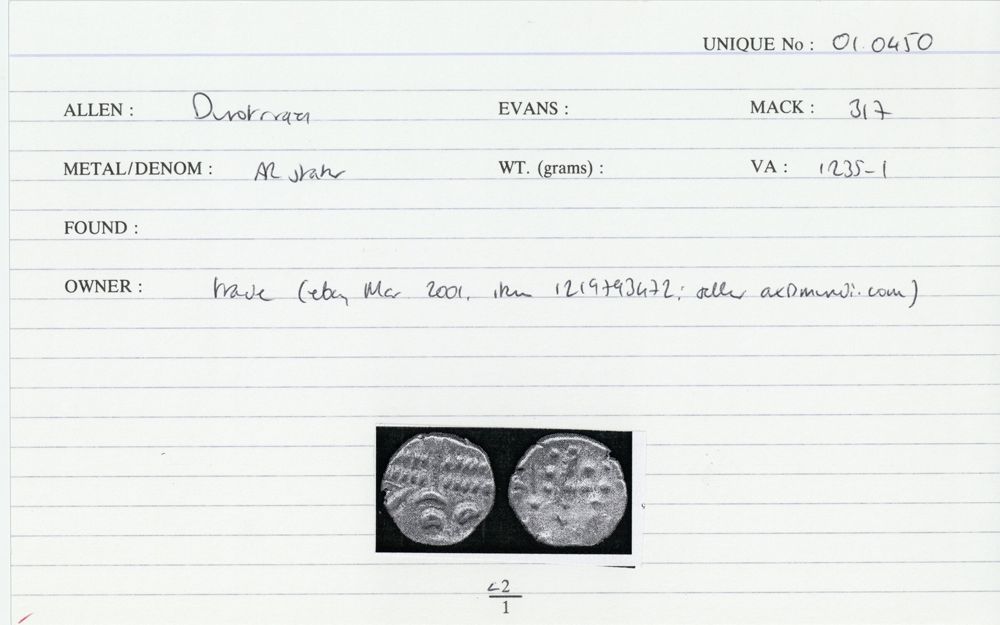 UNIQUE No : 01.0450
ALLEN : Durotrigan EVANS : MACK : 317
METAL/DENOM : AR stater WT. (grams) : VA : 1235-1
FOUND :
OWNER : trade (ebay Mar 2001, item 1219793472; seller axDmundi.com)
c2
1